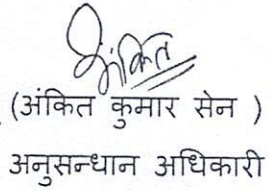 अंकित
(अंकित कुमार सेन )
अनुसन्धान अधिकारी